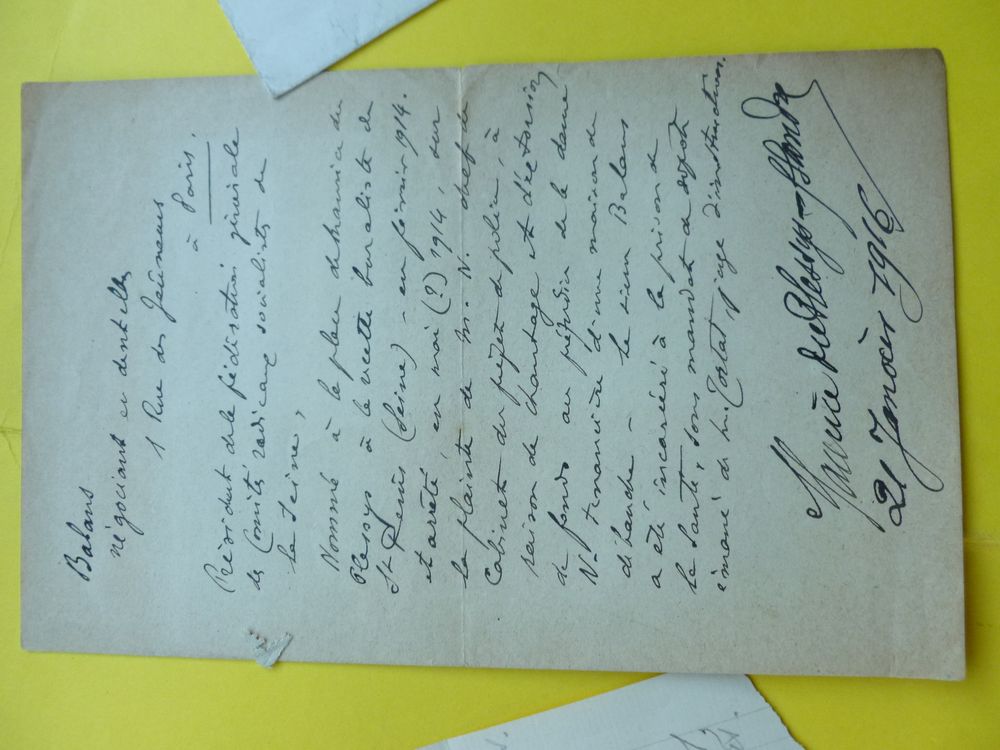 Balans
négociant en dentelles
1 Rue des Jeûneurs
à Paris.
Président de la fédération générale
des Comités radicaux socialistes de
la Seine,
Nommé à la place de
Plessy à la recette buraliste de
St Denis (Seine) - en février 1914.
et arrêté en mai (?) 1914, sur
la plainte de M. N. chef de
Cabinet du préfet de police, à
raison de chantage et d'extorsion
de fonds au préjudice de la dame
N. tenancière d'une maison de
débauche - Le sieur Balans
a été incarcéré à la prison de
la Santé, sous mandat de dépôt
émané de M. Tortat, juge d'instruction.
21 Janvier 1916